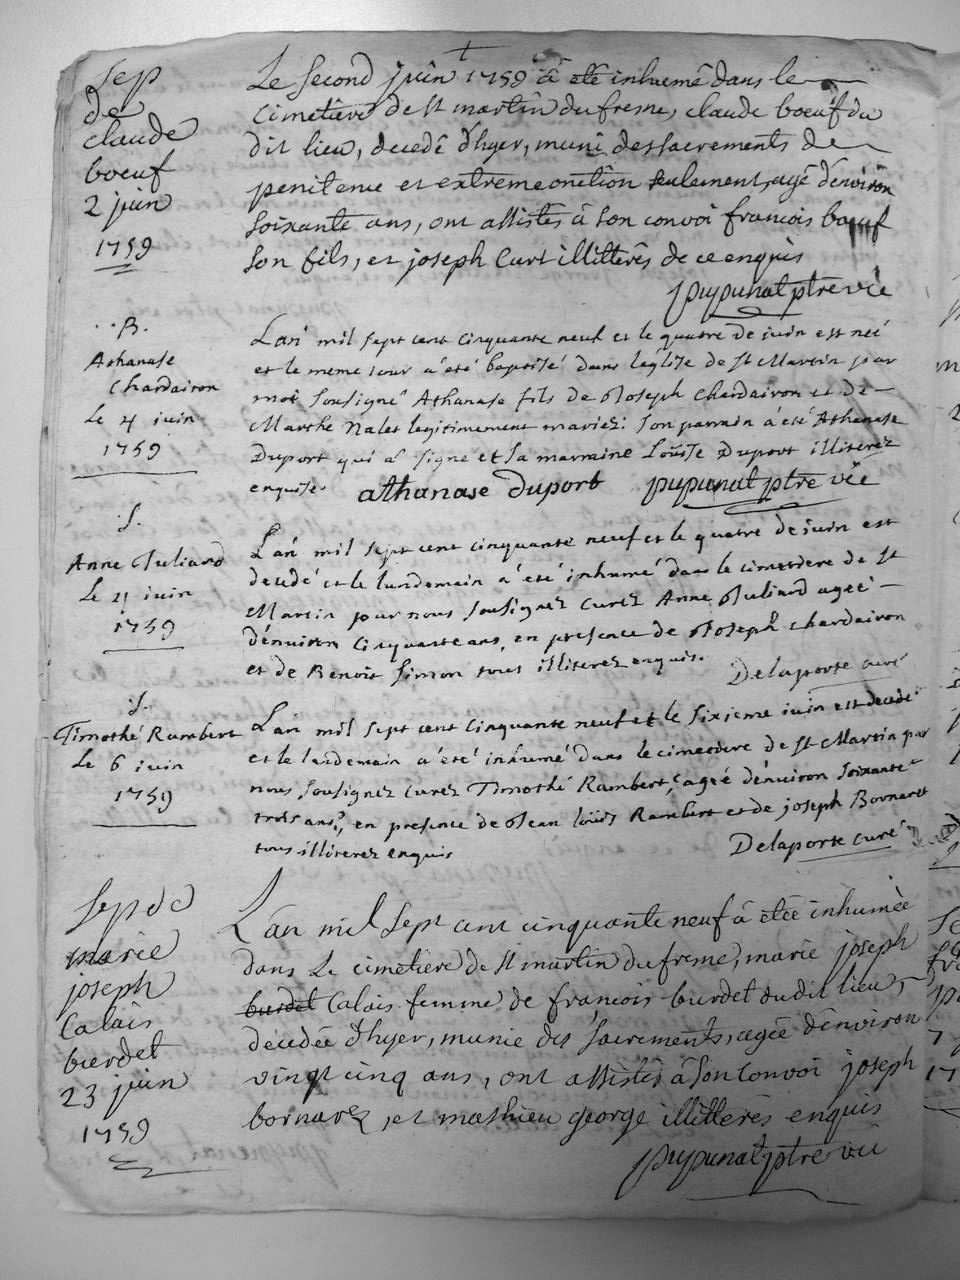 Sep
de
claude
boeuf
2 juin
1759
Le Second juin 1759 â etê inhumê dans le
cimetiere de St martin du fresne, claude boeuf du
dit lieu, decedê d'hyer, muni des sacrements de
penitence et extremeonction seulement, agê d'environ
soixante ans, ont assistês â son convoi francois boeuf
son fils, et joseph Curt illitterês de ce enquis
pupunat ptre vic
B.
Athanase
Chardairon
Le 4 juin
1759
L'an mil sept cent cinquante neuf et le quatre de juin est neé
et le meme iour a été baptisé dans leglise de St Martin par
moi soussigné Athanase fils de Joseph Chardairon et de
Marthe Nalet legitimement mariez: son parrain a été Athanase
Duport qui a signé et sa marraine Louise Duport illiterez
enquise. athanase duport pupunat ptre vic
S.
Anne Juliard
Le 4 juin
1759
L'an mil sept cent cinquante neuf et le quatre de juin est
decedé et le landemain a été inhumé dans le cimettiere de St
Martin par nous soussignez curez Anne Juliard ageé
d'environ cinquante ans, en presence de Joseph chardairon
et de Benoit Simon tous illiterez enquis.
Delaporte curé
S.
Timothé Rambert
Le 6 juin
1759
L'an mil sept cent cinquante neuf et le sixieme iuin est decedé
et le landemain a été inhumé dans le cimettiere de St Martin par
nous soussignez curez Timothé Rambert, agé d'environ soixante
trois ans, en presence de Jean loüis Rambert et de joseph Bornaret
tous illiterez enquis
Delaporte curé
Sep de
marie
joseph
Calais
burdet
23 juin
1759
L'an mil sept cent cinquante neuf â etée inhumée
dans le cimetiere de St martin du fresne, marie joseph
burdet Calais femme de francois burdet du dit lieu,
decedée d'hyer, munie des sacrements, agée d'environ
vingt cinq ans, ont assistês â son convoi joseph
bornarez, et mathieu george illitterês enquis
pupunat ptre vic